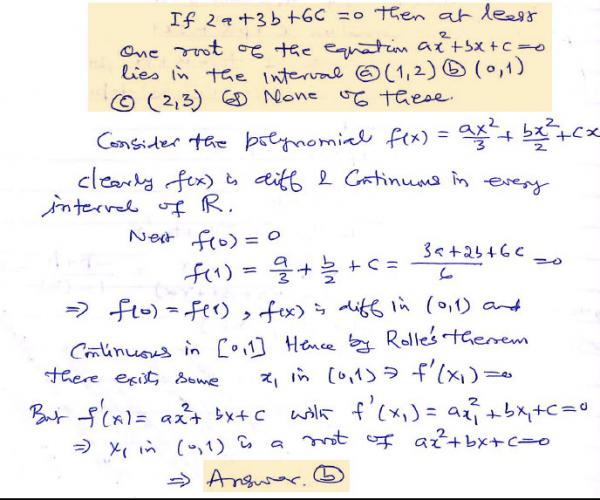 If 2a+3b+6c=0 then at least
one root of the equation ax²+bx+c=0
lies in the interval ⓐ (1,2) ⓑ (0,1)
ⓒ (2,3) ⓓ None of these.
Consider the polynomial f(x) = ax²/3 + bx²/2 + cx
clearly f(x) is diff & Continuous in every
interval of R.
Next f(0) = 0
f(1) = a/3 + b/2 + c = 3a+2b+6c/6 = 0
⇒ f(0) = f(1), f(x) is diff in (0,1) and
Continuous in [0,1] Hence by Rolle's theorem
there exists some x₁ in (0,1) ∋ f'(x₁) = 0
But f'(x) = ax²+ bx+c with f'(x₁) = ax₁²+bx₁+c=0
⇒ x₁ in (0,1) is a root of ax²+bx+c=0
⇒ Answer. ⓑ